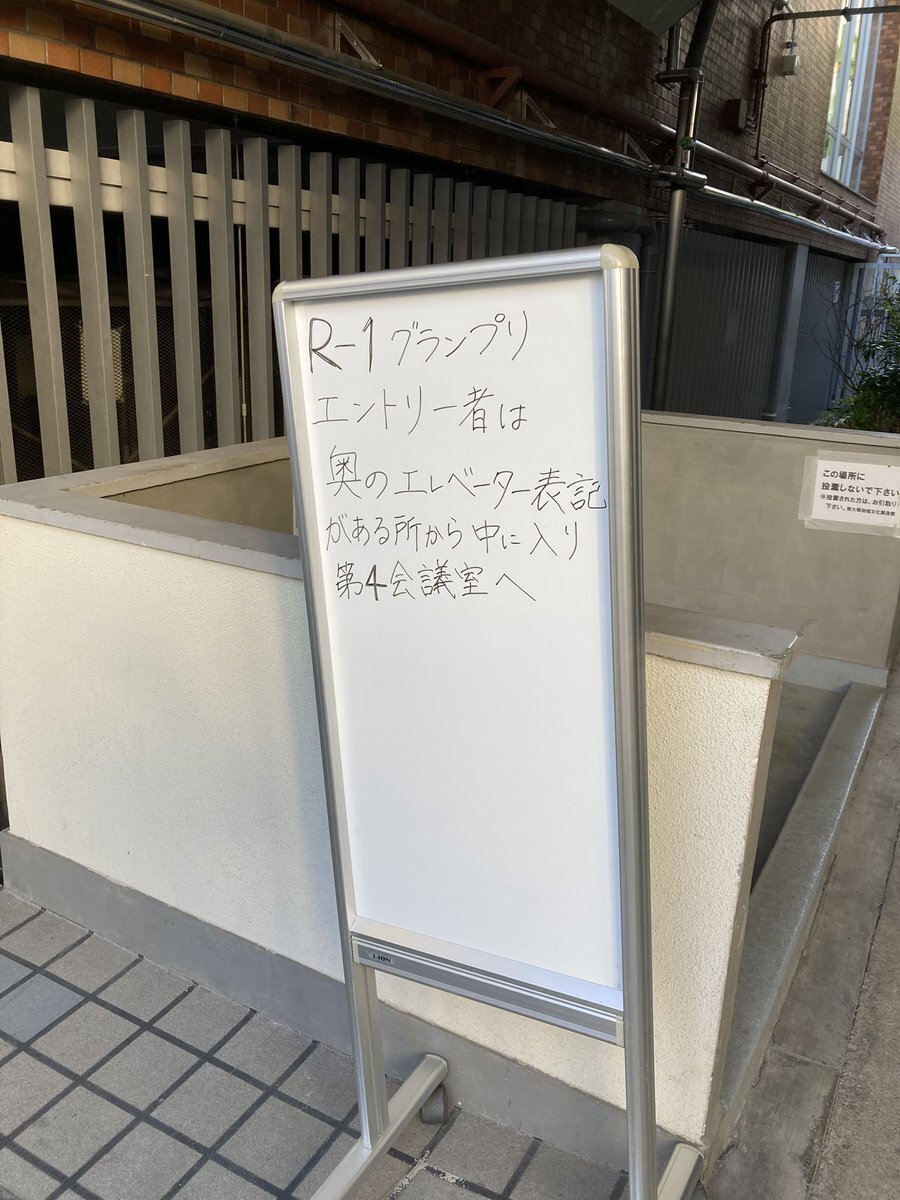 R-1グランプリ
エントリー者は
奥のエレベーター表記
がある所から中に入り
第4会議室へ
LION
この場所に
投棄しないで下さい
※投棄された方は、お引取り
下さい。